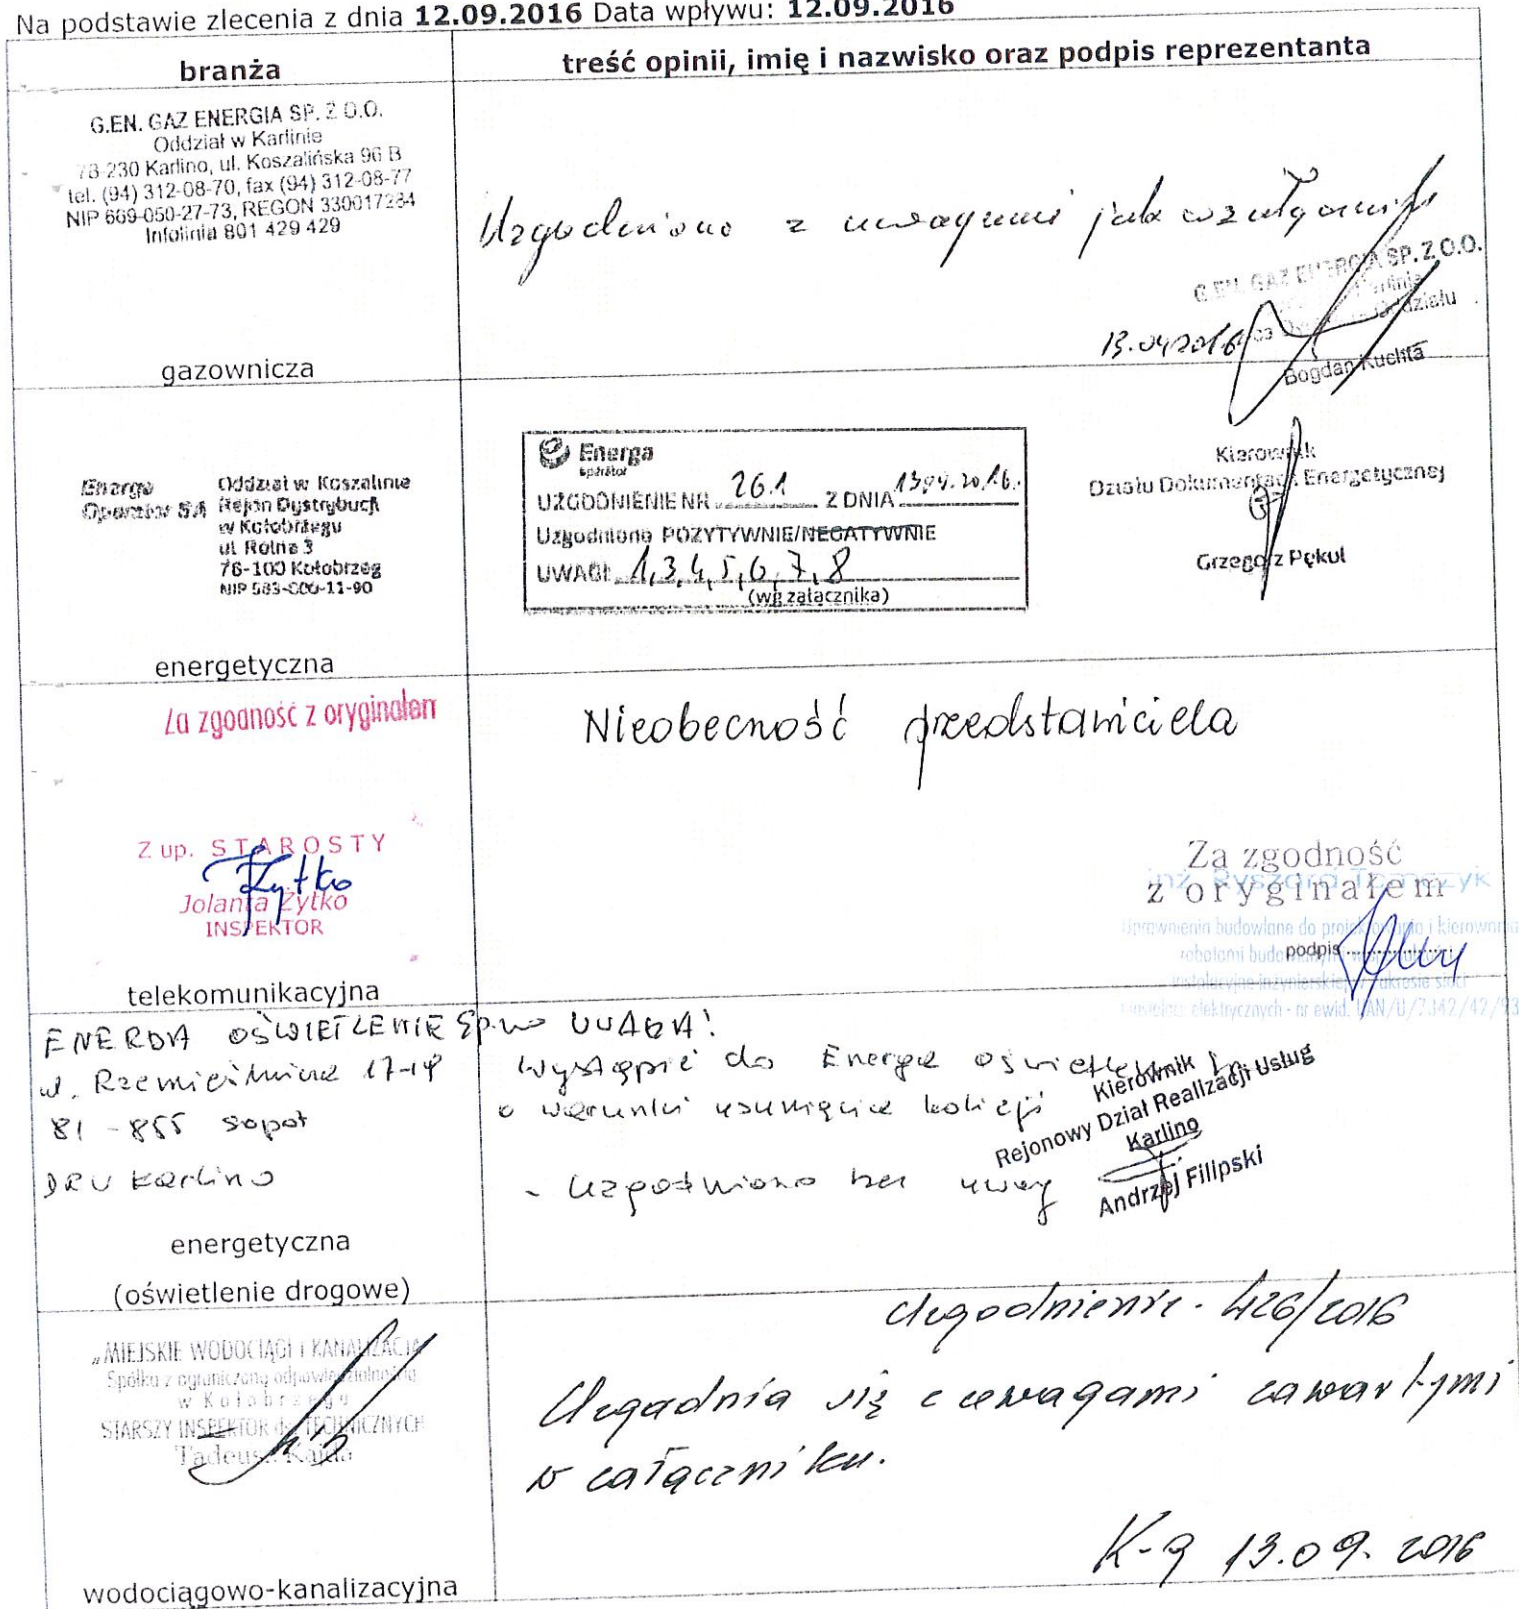 Na podstawie zlecenia z dnia 12.09.2016 Data wpływu: 12.09.2016
branża
treść opinii, imię i nazwisko oraz podpis reprezentanta
G.EN. GAZ ENERGIA SP. Z O.O.
Oddział w Karlinie
78-230 Karlino, ul. Koszalińska 96 B
tel. (94) 312-08-70, fax (94) 312-08-77
NIP 669-050-27-73, REGON 330017284
Infolinia 801 429 429
gazownicza
Uzgodniono z uwagami jak w załączniku
G.EN. GAZ ENERGIA SP. Z O.O.
Oddziału
Bogdan Kuchta
Energa Operator SA
Oddział w Koszalinie
Rejon Dystrybucji
w Kołobrzegu
ul. Rolna 3
78-100 Kołobrzeg
NIP 583-000-11-90
energetyczna
Energa
operator
UZGODNIENIE NR 261 Z DNIA
Uzgodniono POZYTYWNIE/NEGATYWNIE
UWAGI 1,3,4,5,6,7,8
(wg załącznika)
Kierownik
Działu Dokumentacji Energetycznej
Grzegorz Pękul
Za zgodność z oryginałem
Z up. STAROSTY
Żytko
Jolanta Żytko
INSPEKTOR
telekomunikacyjna
Nieobecność przedstawiciela
Za zgodność
z oryginałem
podpis
inż. Ryszard Tomczyk
Uprawnienia budowlane do projektowania i kierowania
robotami budowlanymi
instalacyjno-inżynierskiej w zakresie sieci
elektrycznych - nr ewid. UAN/U/7342/42/93
ENERGA OŚWIETLENIE Sp. z o.o
ul. Rzemieślnicza 17-19
81-855 Sopot
DRU Karlino
energetyczna
(oświetlenie drogowe)
UWAGA!
Wystąpić do Energa oświetlenie
o warunki usunięcia kolizji
- Uzgodniono bez uwag
Kierownik
Rejonowy Dział Realizacji Usług
Karlino
Andrzej Filipski
„MIEJSKIE WODOCIĄGI i KANALIZACJA
Spółka z ograniczoną odpowiedzialnością
w Kołobrzegu
STARSZY INSPEKTOR ds. TECHNICZNYCH
Tadeusz Kajda
wodociągowo-kanalizacyjna
Uzgodnienie. 426/2016
Uzgadnia się z uwagami zawartymi
w załączniku.
K-g 13.09.2016